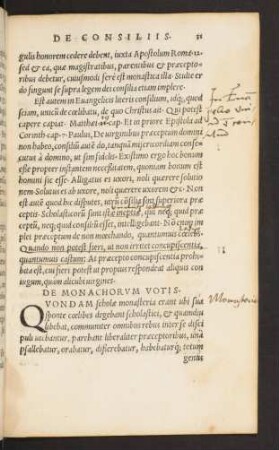 DE CONSILIIS. 31
gelis honorem cedere debent, iuxta Apostolum Roma. 13.
sed & ea, quæ magistratibus, parentibus & præcepto-
ribus debetur, cuiusmodi seré est monastica illa. Stulte er
do fingunt se supra legem dei consilia etiam implere.
Est autem in Euangelicis literis consilium, idq;, quod
sciam, unicũ de cœlibatu, de quo Christus ait. Qui potest
capere capiat. Matthæi 19 cap. Et in priore Epistola ad
Corinth cap. 7. Paulus, De uirginibus præceptum domini
non habeo, consiliũ autẽ do, tanq̃ misericordiam conse-
cutus à domino, ut sim fidelis. Existimo ergo hoc bonum
esse propter instantem necessitatem, quoniam bonum est
homini sic esse. Alligatus es uxori, noli querere solutio
nem. Solutus es ab uxore, noli quærere uxorem &c. Non
est autẽ quod hic disputes, utrũ consilia sint superiora præ
ceptis. Scholasticorũ sunt istæ ineptiæ, qui neq; quid præ
ceptũ, neq;, quid consiliũ esset, intelligebant. Nõ enim im
plet præceptum de non mœchando, quantumuis cælebs.
Quando non potest fieri, ut non irritet concupiscentia,
quantumuis castum: At præcepto concupiscentia prohi
bita est, cui fieri potest ut propius respondeat aliquis con
iugum, quàm alicubi uirgines.
DE MONACHORVM VOTIS.
QVONDAM scholæ monasteria erant ubi sua
sponte cœlibes degebant scholastici, & quandiu
libebat, communiter omnibus rebus inter se disci
puli utebantur, parebant liberaliter præceptoribus, unà
psallebat, orabatur, disserebatur, habebaturq; totum
genus
Monasteria